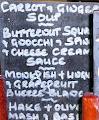 CARROT & GINGER
SOUP
BUTTERNUT SQUA
& GNOCCHI + SPIN
& CHEESE CREAM
SAUCE
MONKFISH + LIME
& GRAPEFRUIT
BUERRE BLANC
HAKE + OLIVE
MASH & BASI